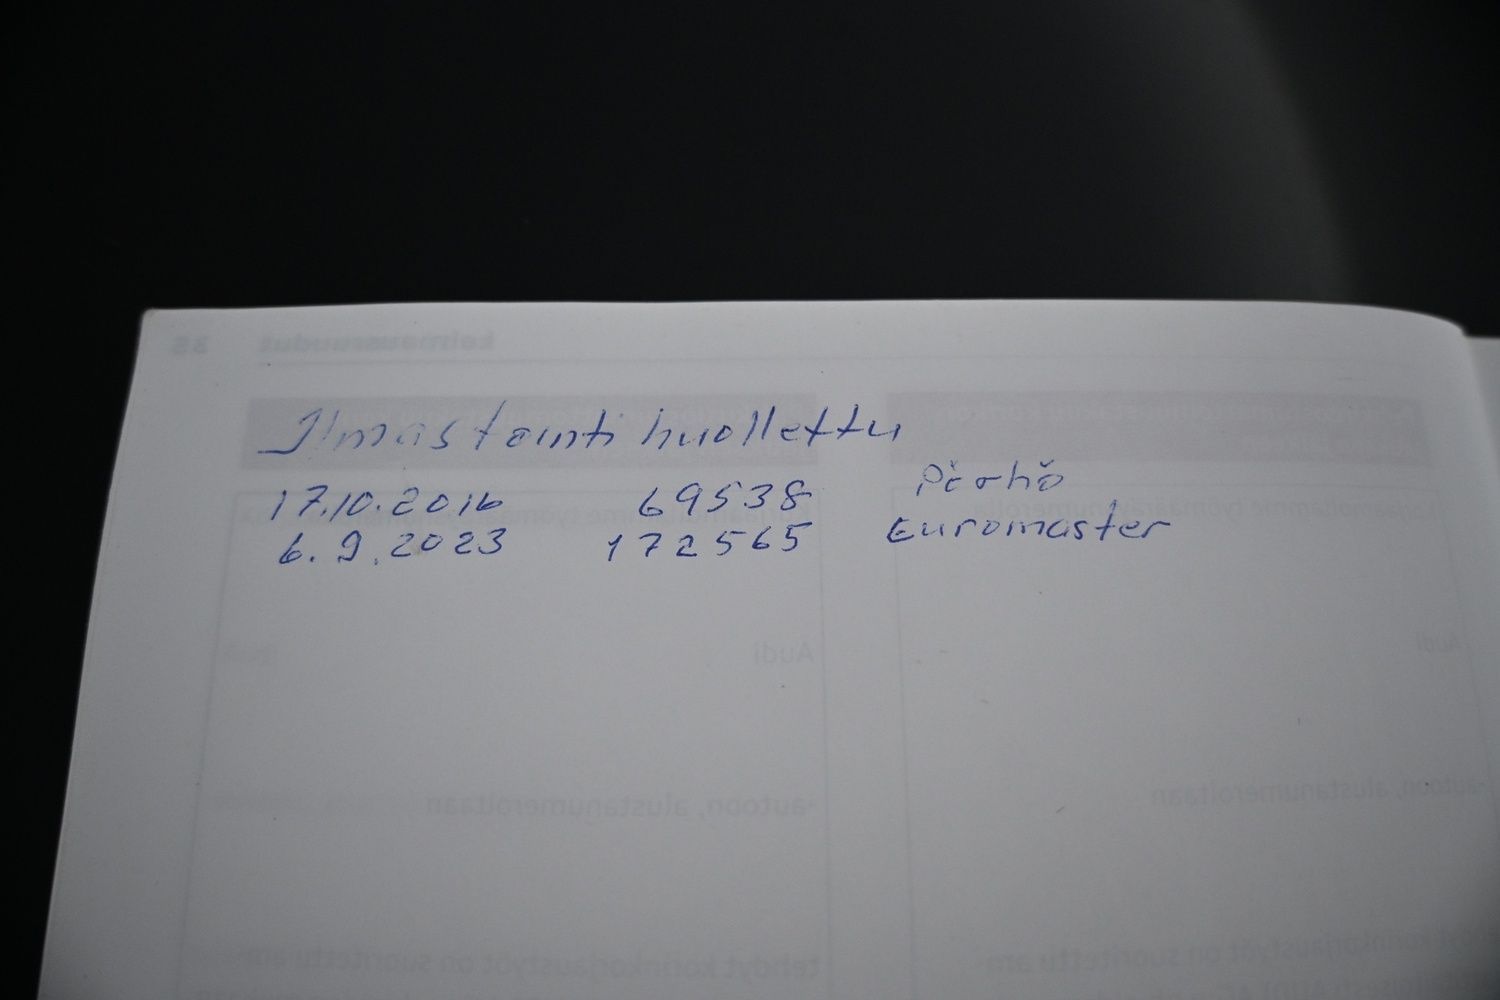 Ilmastointi huollettu
17.10.2016 69538 Pörhö
6.9.2023 172565 Euromaster